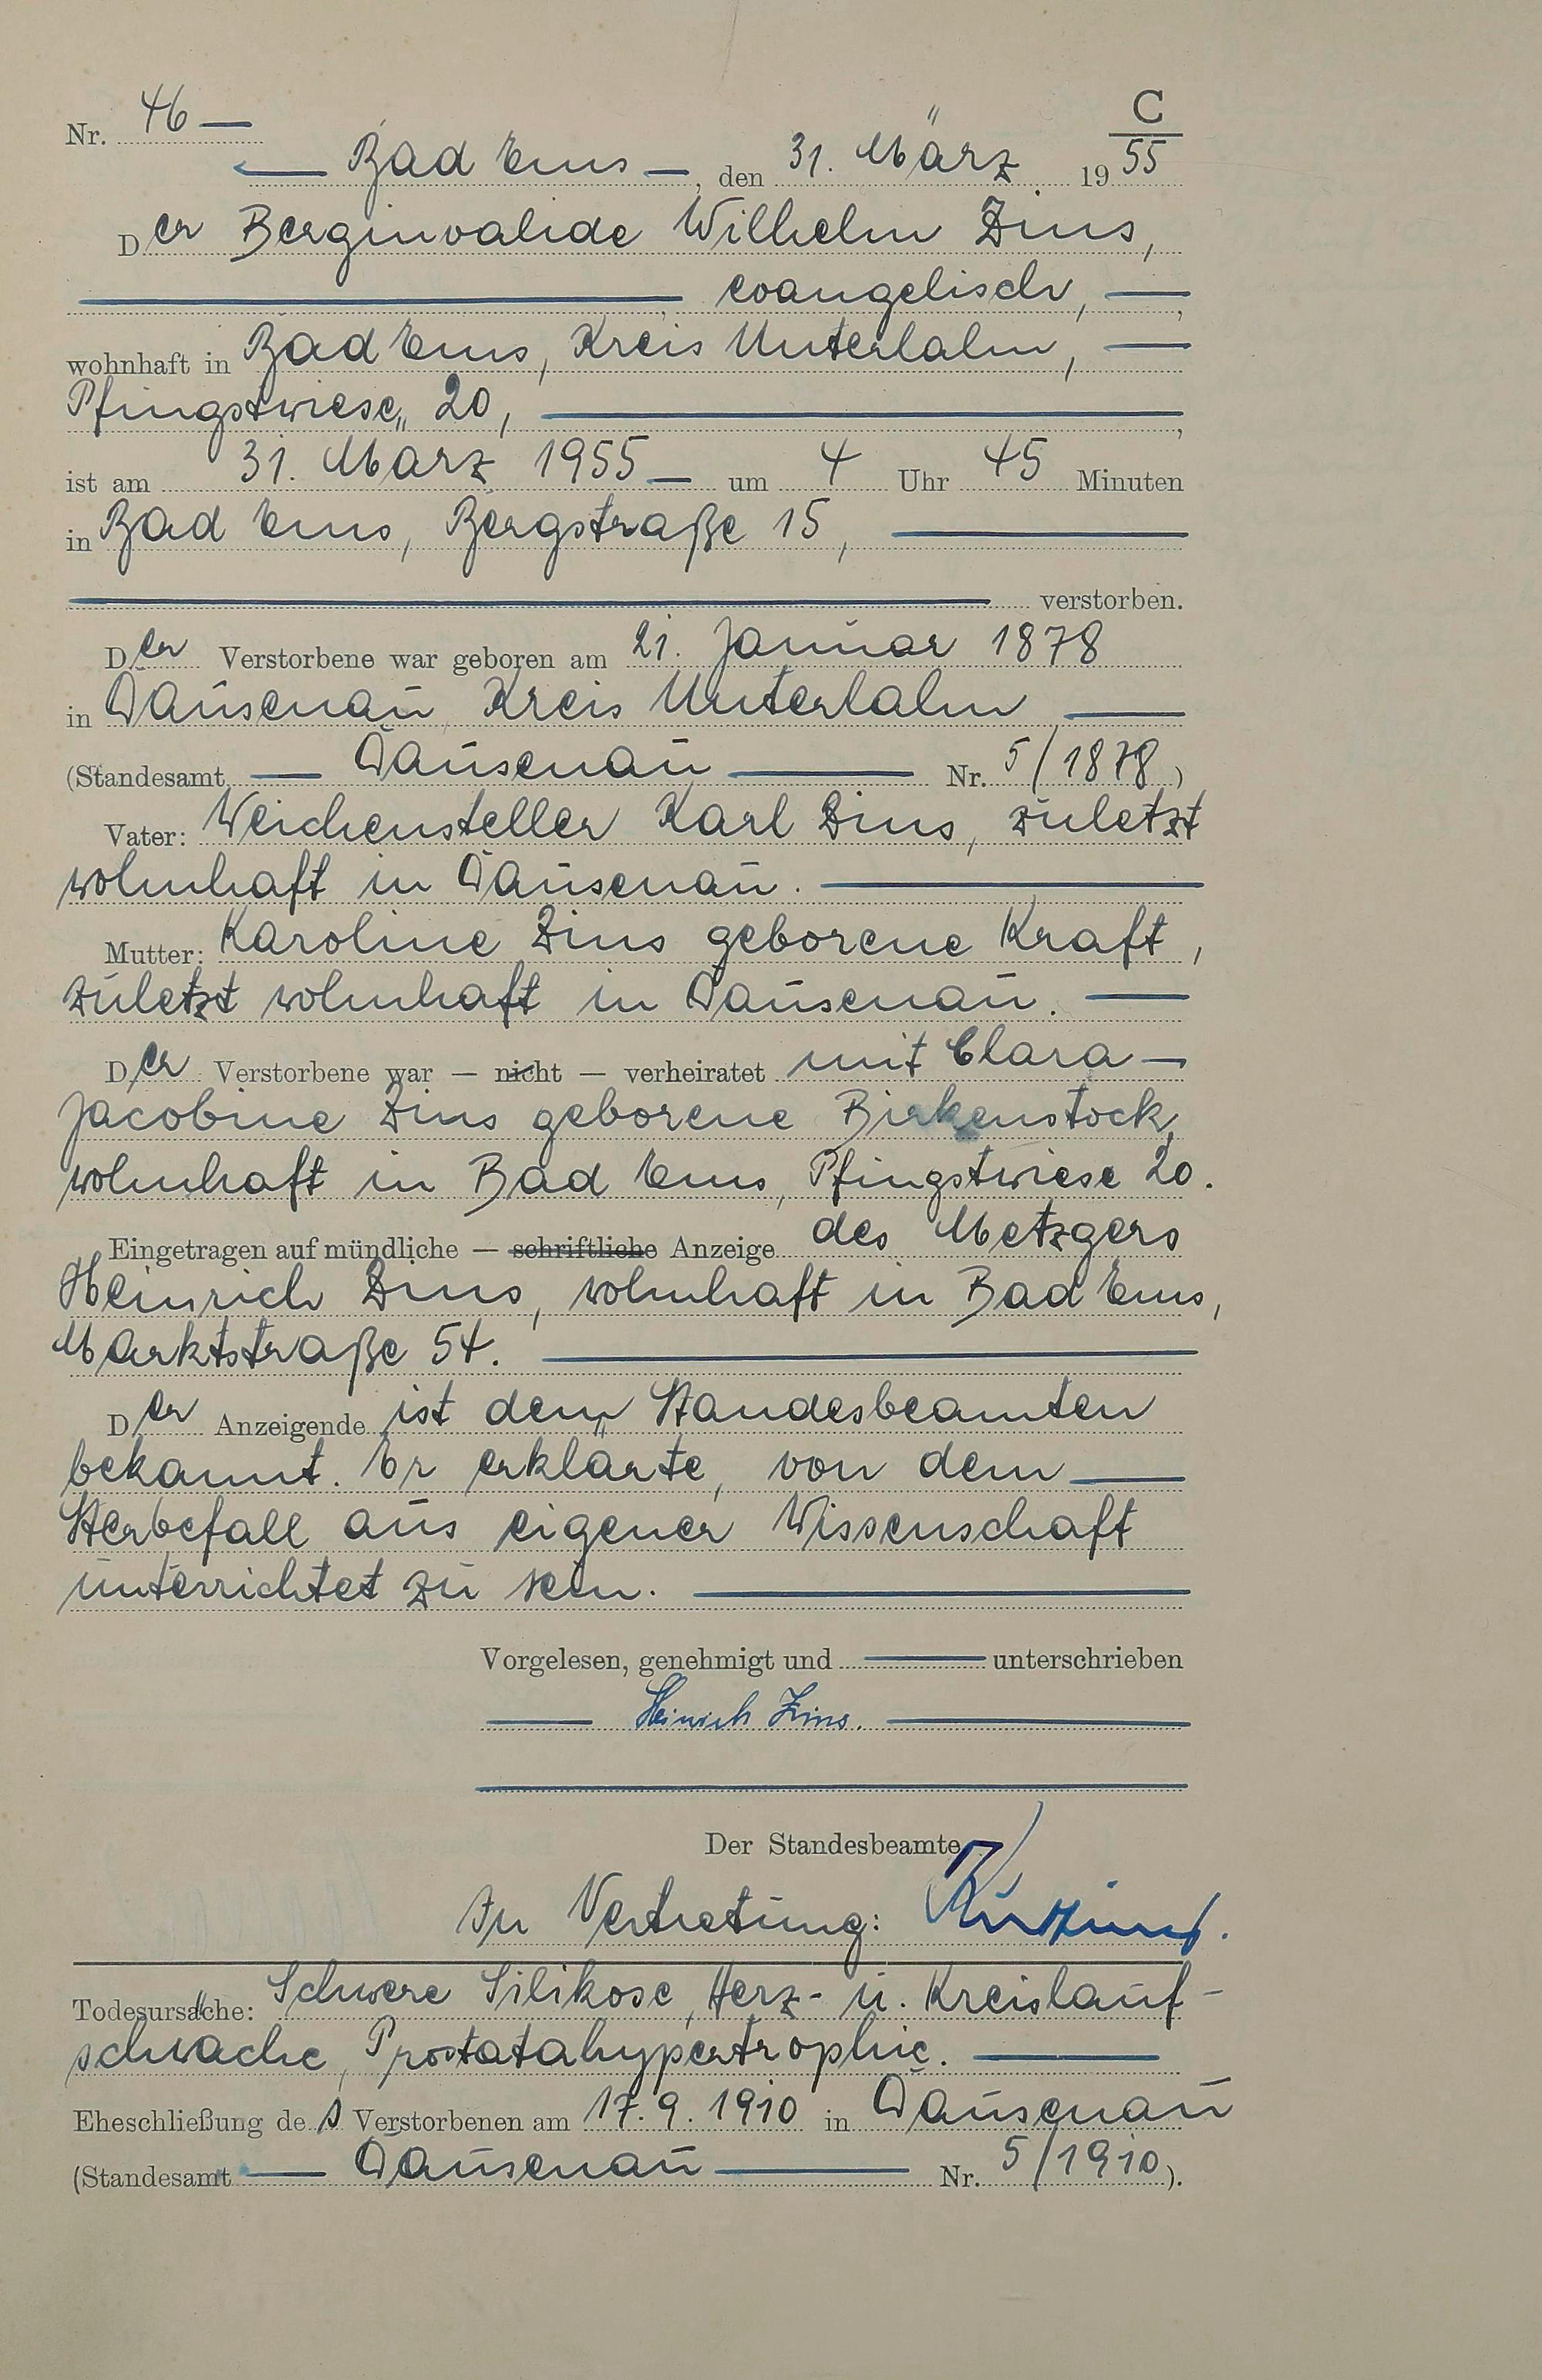 C
Nr. 46 —
— Bad Ems —, den 31. März 19 55
Der Berginvalide Wilhelm Zins,
evangelisch, —
wohnhaft in Bad Ems, Kreis Unterlahn, —
Pfingstwiese 20,
ist am 31. März 1955 — um 4 Uhr 45 Minuten
in Bad Ems, Bergstraße 15,
verstorben.
Der Verstorbene war geboren am 21. Januar 1878
in Dausenau Kreis Unterlahn —
(Standesamt — Dausenau — Nr. 5/1878)
Vater: Weichensteller Karl Zins, zuletzt
wohnhaft in Dausenau. —
Mutter: Karoline Zins geborene Kraft,
zuletzt wohnhaft in Dausenau. —
Der Verstorbene war — nicht — verheiratet mit Clara —
Jacobine Zins geborene Birkenstock,
wohnhaft in Bad Ems, Pfingstwiese 20.
Eingetragen auf mündliche — schriftliche Anzeige des Metzgers
Heinrich Zins, wohnhaft in Bad Ems,
Marktstraße 54. —
Der Anzeigende ist dem Standesbeamten
bekannt. Er erklärte, von dem —
Sterbefall aus eigener Wissenschaft
unterrichtet zu sein. —
Vorgelesen, genehmigt und — unterschrieben
— Heinrich Zins. —
Der Standesbeamte
In Vertretung:
Todesursache: Schwere Silikose, Herz- u. Kreislauf-
schwäche, Prostatahypertrophie. —
Eheschließung des Verstorbenen am 17.9.1910 in Dausenau
(Standesamt — Dausenau — Nr. 5/1910).